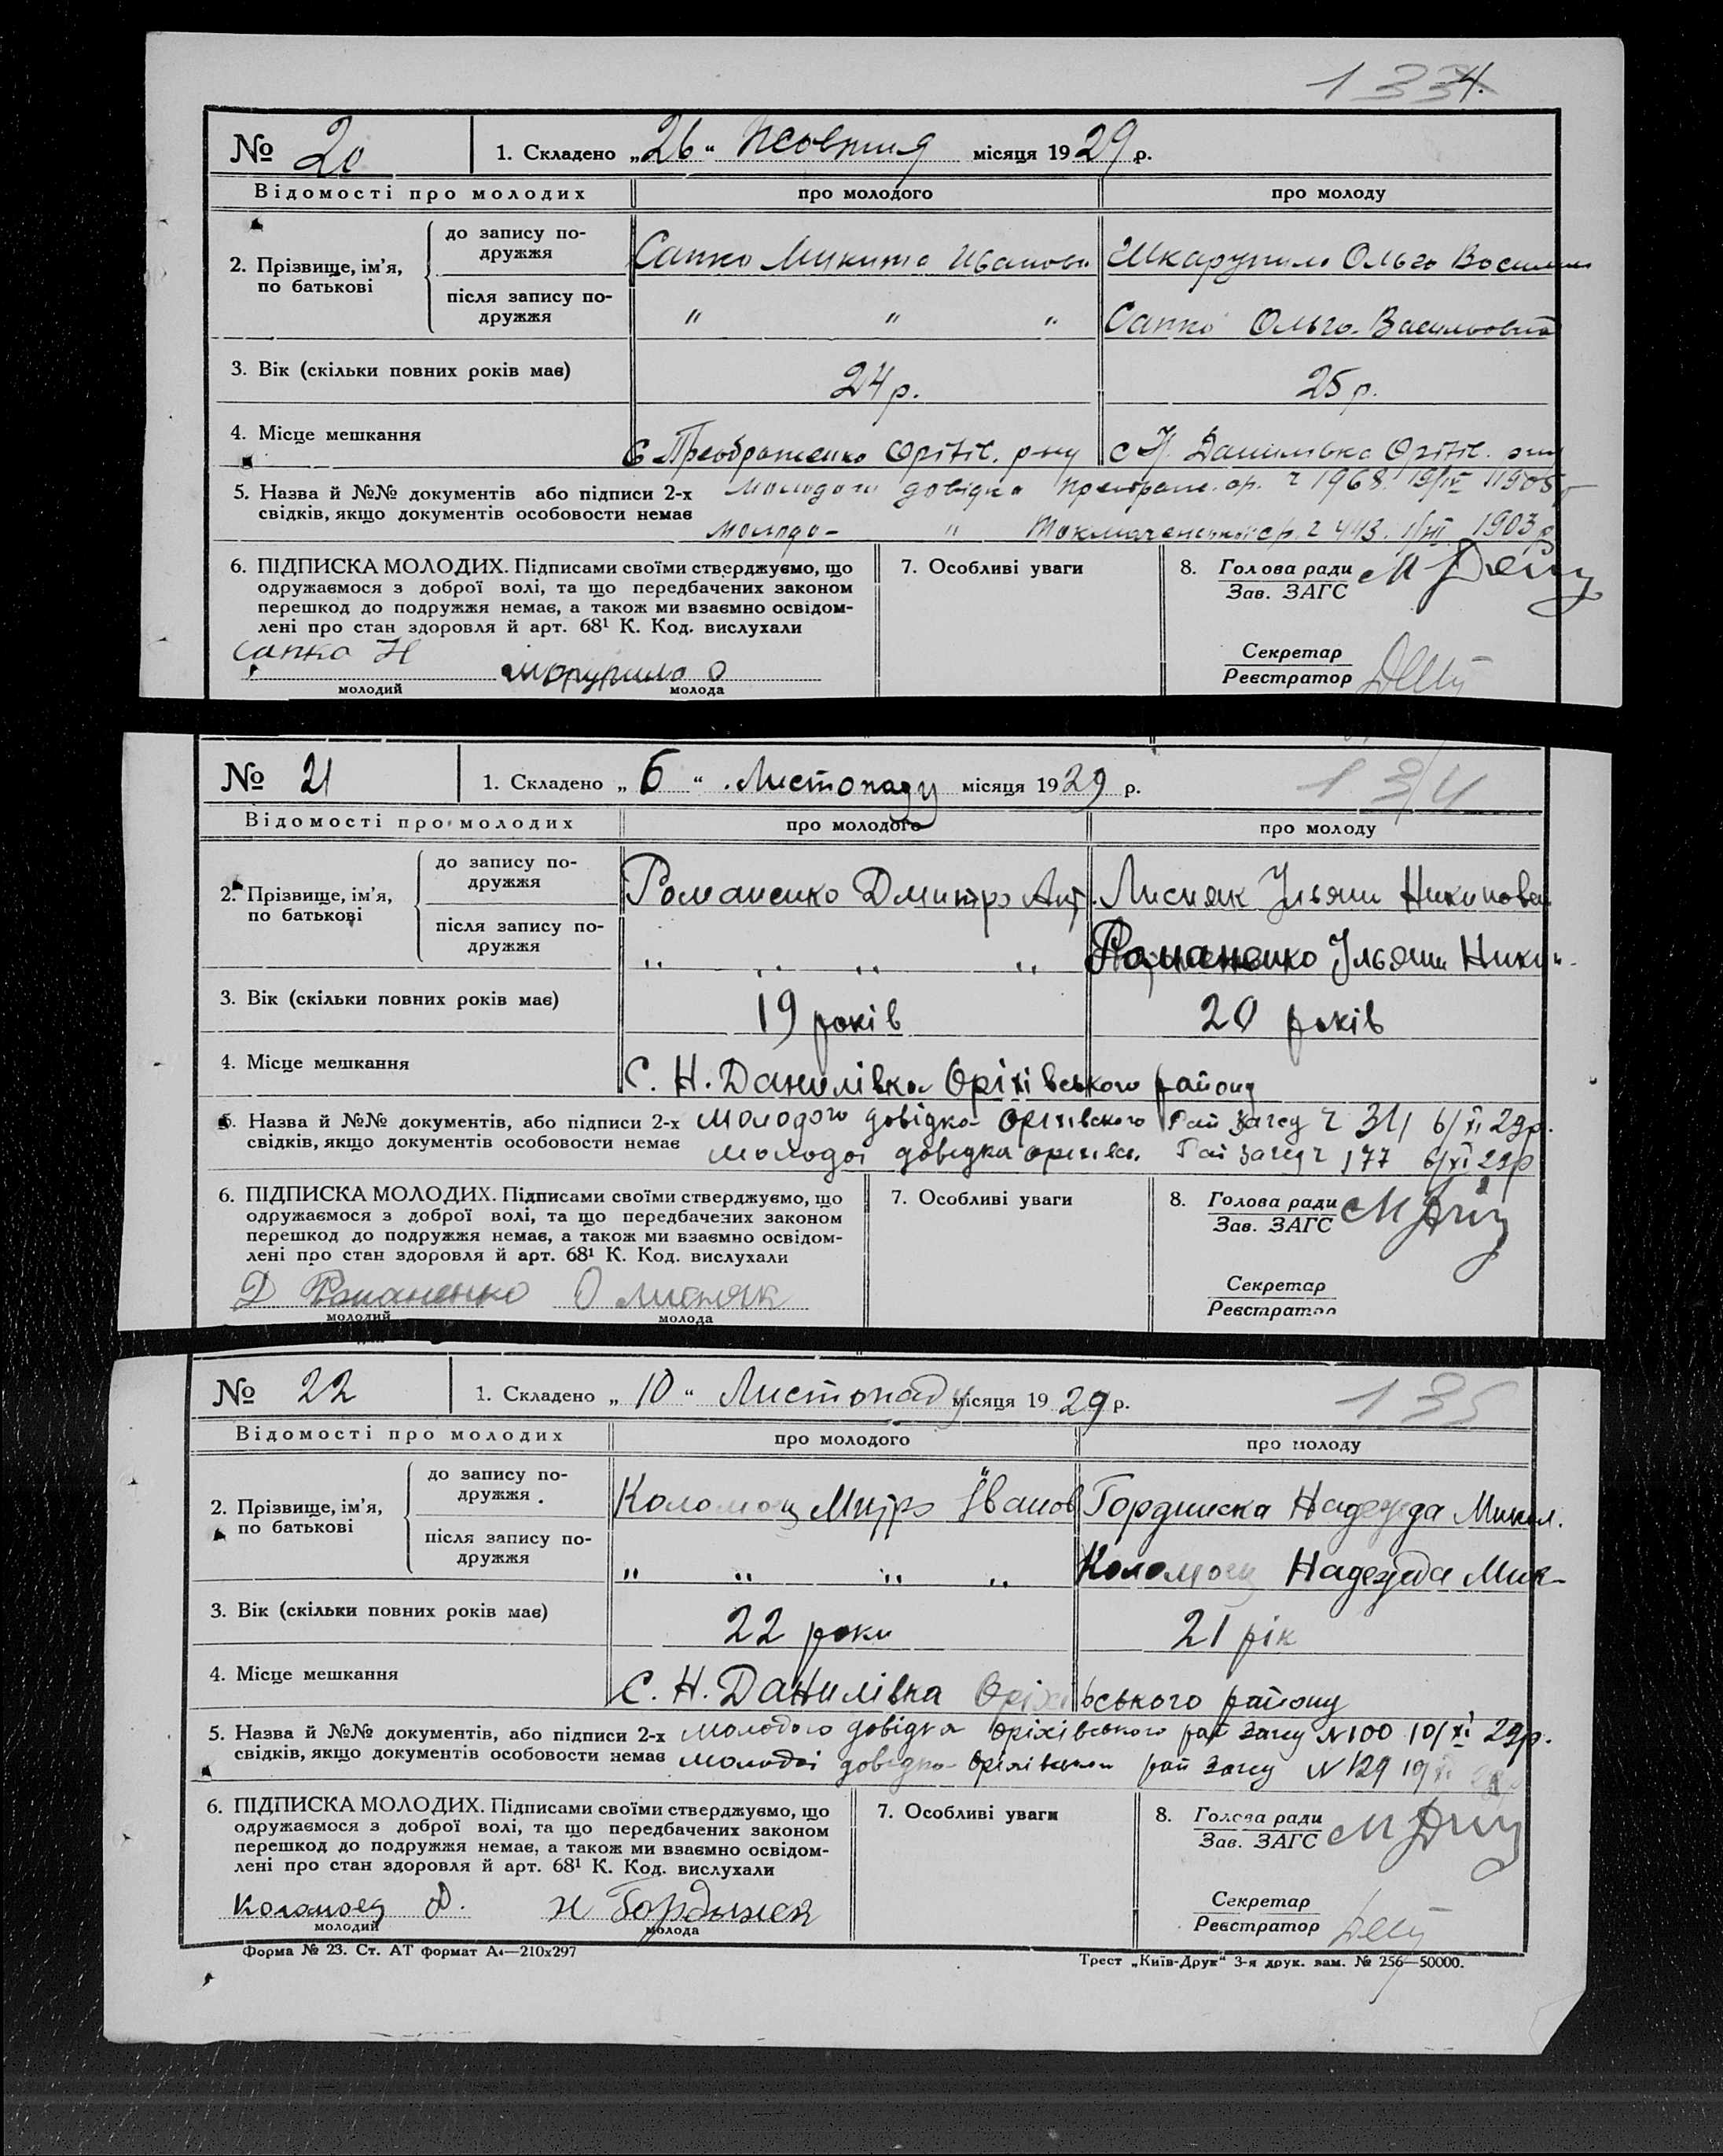 1334.
№ 20 1. Складено „26“ Жовтня місяця 1929 р.
Відомості про молодих про молодого про молоду
2. Прізвище, ім’я, по батькові
до запису по-дружжя Сапко Микита Иванови Шкарупило Ольга Василів
після запису по-дружжя " " " Сапко Ольга Васильовна
3. Вік (скільки повних років має) 24 р. 25 р.
4. Місце мешкання С Преображенка Оріхів. р-ну с Н. Данилівка Оріхів. р-ну
5. Назва й №№ документів або підписи 2-х Молодого довідка ч 1968 19/IV 1905
свідків, якщо документів особовости немає Молодо- " ч 443. 1903 р
6. ПІДПИСКА МОЛОДИХ. Підписами своїми стверджуємо, що
одружаємося з доброї волі, та що передбачених законом
перешкод до подружжя немає, а також ми взаємно освідом-
лені про стан здоровля й арт. 68¹ К. Код. вислухали
7. Особливі уваги
8. Голова ради
Зав. ЗАГС
Сапко Н
молодий молода
Секретар
Реєстратор
№ 21 1. Складено „6“ Листопаду місяця 1929 р. 134
Відомості про молодих про молодого про молоду
2. Прізвище, ім’я, по батькові
до запису по-дружжя Романенко Дмитро Ант. Лисняк Ульяни Никиповен
після запису по-дружжя " " " " Романенко Ульяни Ники
3. Вік (скільки повних років має) 19 років 20 років
4. Місце мешкання С. Н. Данилівка Оріхівського району
5. Назва й №№ документів, або підписи 2-х Молодого довідка Оріхівского Рай Загсу ч 311 6/XI 29р.
свідків, якщо документів особовости немає Молодої довідка Оріхівск. Рай Загсу ч 177 6/XI 29р
6. ПІДПИСКА МОЛОДИХ. Підписами своїми стверджуємо, що
одружаємося з доброї волі, та що передбачених законом
перешкод до подружжя немає, а також ми взаємно освідом-
лені про стан здоровля й арт. 68¹ К. Код. вислухали
7. Особливі уваги
8. Голова ради
Зав. ЗАГС
Д Романенко О Лисняк
молодий молода
Секретар
Реєстратор
№ 22 1. Складено „10“ Листопаду місяця 1929 р. 135
Відомості про молодих про молодого про молоду
2. Прізвище, ім’я, по батькові
до запису по-дружжя Коломоец Митро Іванов Гординска Надежда Микол.
після запису по-дружжя " " " " Коломоец Надежда Мик-
3. Вік (скільки повних років має) 22 роки 21 рік
4. Місце мешкання С. Н. Данилівка Оріхівського району
5. Назва й №№ документів, або підписи 2-х Молодого довідка Оріхівського рай Загсу N 100 10/XI 29р.
свідків, якщо документів особовости немає Молодої довідка Оріхівского рай Загсу N 129
6. ПІДПИСКА МОЛОДИХ. Підписами своїми стверджуємо, що
одружаємося з доброї волі, та що передбачених законом
перешкод до подружжя немає, а також ми взаємно освідом-
лені про стан здоровля й арт. 68¹ К. Код. вислухали
7. Особливі уваги
8. Голова ради
Зав. ЗАГС
Коломоец Д. Н Гординская
молодий молода
Секретар
Реєстратор
Форма № 23. Ст. АТ формат А₄—210x297 Трест „Київ-Друк“ 3-я друк. зам. № 256—50000.